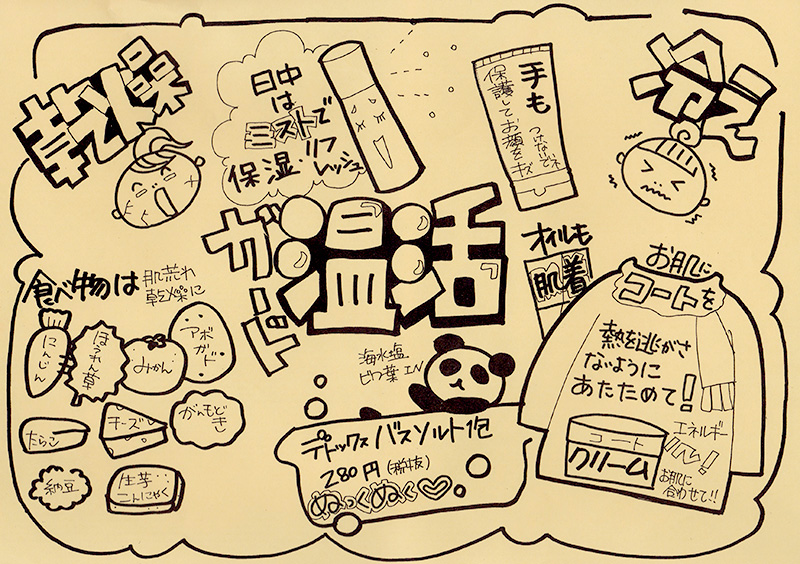 乾燥
日中
は
ミストで
保湿・リフ
レッシュ
手も
保護してお顔をキズ
つけないでネ
冷え
ガード
温活
オイルも
肌着
お肌に
コートを
熱を逃がさ
ないように
あたためて!
エネルギー
IN!
お肌に
合わせて!!
コート
クリーム
食べ物は
肌荒れ
乾燥に
にんじん
ほうれん草
みかん
アボ
ガド
たらこ
チーズ
がんもど
き
納豆
生芋
こんにゃく
海水塩
ビワ葉 IN
デトックス バスソルト1包
280円(税抜)
ぬっくぬく♡